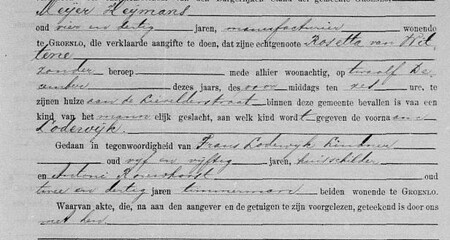 Meijer Heymans
oud vier en dertig jaren, manufacturier wonende
te GROENLO, die verklaarde aangifte te doen, dat zijne echtgenoote Rosetta van Wit
tene
zonder beroep mede alhier woonachtig, op twaalf De
cember dezes jaars, des voor middags ten ure, te
zijnen huize aan de Lievelderstraat binnen deze gemeente bevallen is van een
kind van het manne elijk geslacht, aan welk kind wordt gegeven de voorna am
Lodewijk.
Gedaan in tegenwoordigheid van Frans Lodewijk Lindner
oud vijf en vijftig jaren, huisschilder
en Antoni oud
twee en dertig jaren timmerman beiden wonende te GROENLO.
Waarvan akte, die, na aan den aangever en de getuigen te zijn voorgelezen, geteekend is door ons
met den